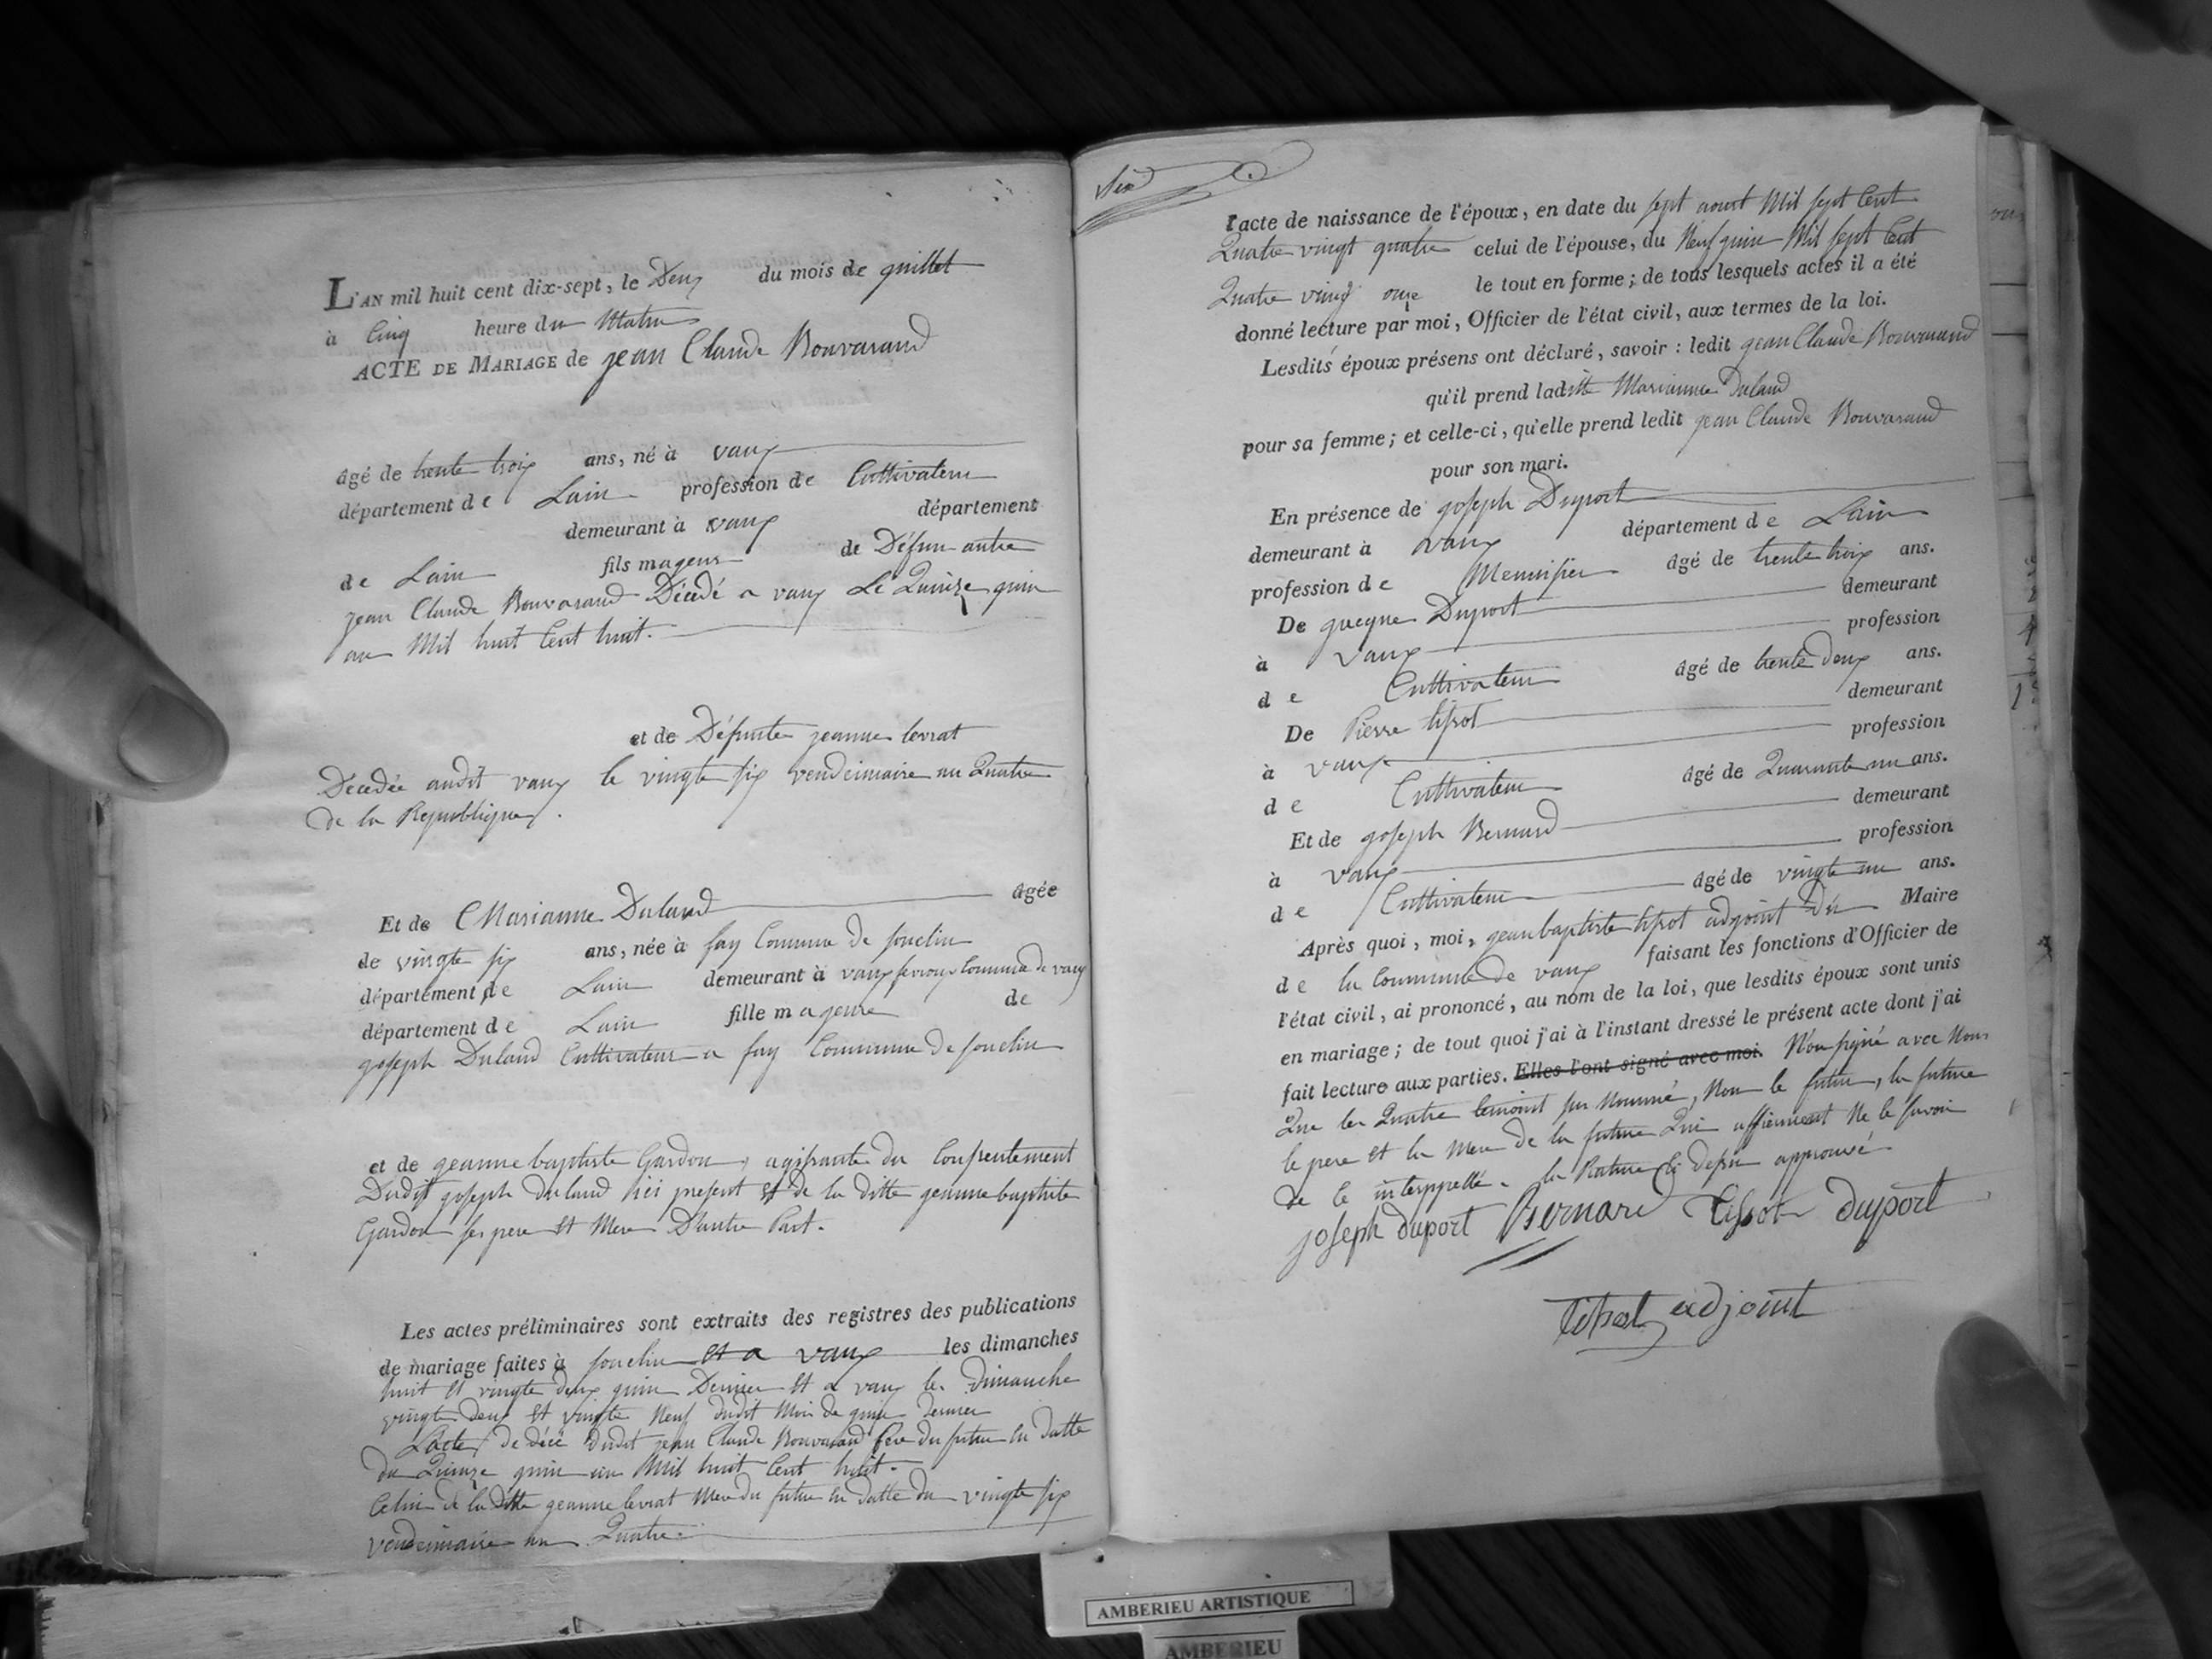 L'AN mil huit cent dix-sept, le Deux du mois de juillet
à Cinq heure du Matin
ACTE DE MARIAGE de jean Claude Bouvarand
âgé de trente trois ans, né à vaux
département de Lain profession de Cultivateur
demeurant à vaux département
de Lain fils majeur de Défun autre
jean Claude Bouvarand Décédé a vaux Le Quinze juin
an Mil huit Cent huit.
et de Défunte jeanne levrat
Decedée audit vaux le vingte six vendeimaire an Quatre
de la Republique.
Et de Marianne Duland âgée
de vingte six ans, née à fay Commune de souclin
département de Lain demeurant à vaux Commune de vaux
département de Lain fille majeure de
joseph Duland Cultivateur a fay Commune de souclin
et de jeanne baptiste Gardon, agissante du Consentement
Dudit joseph duland ici present et de la ditte jeanne baptiste
Gardon ses pere et Mere D'autre Part.
Les actes préliminaires sont extraits des registres des publications
de mariage faites à souclin et a vaux les dimanches
huit et vingte deux juin Dernier et a vaux les Dimanche
vingte deux et vingte Neuf dudit Mois de juin dernier
L'acte de décé dudit jean Claude Bouvarand père du futur en datte
du Quinze juin an Mil huit Cent huit.
Celui de la ditte jeanne levrat Mere du futur en datte du vingte six
vendeimaire an Quatre.
Six
l'acte de naissance de l'époux, en date du sept aoust Mil sept Cent
Quatre vingt quatre celui de l'épouse, du Neuf juin Mil sept Cent
Quatre vingt onze le tout en forme; de tous lesquels actes il a été
donné lecture par moi, Officier de l'état civil, aux termes de la loi.
Lesdits époux présens ont déclaré, savoir : ledit jean Claude Bouvarand
qu'il prend laditte Marianne Duland
pour sa femme; et celle-ci, qu'elle prend ledit jean Claude Bouvarand
pour son mari.
En présence de joseph Duport
demeurant à vaux département de Lain
profession de Menuisier âgé de trente trois ans.
De jacque Duport demeurant
à vaux profession
de Cultivateur âgé de trente deux ans.
De Pierre tissot demeurant
à vaux profession
de Cultivateur âgé de Quarante un ans.
Et de joseph Bernard demeurant
à vaux profession
de Cultivateur âgé de vingte un ans.
Après quoi, moi, jean baptiste tissot adjoint du Maire
de la Commune de vaux faisant les fonctions d'Officier de
l'état civil, ai prononcé, au nom de la loi, que lesdits époux sont unis
en mariage; de tout quoi j'ai à l'instant dressé le présent acte dont j'ai
fait lecture aux parties. Elles l'ont signé avec moi. N'ou signé avec Nous
Que les Quatre temoins sus Nommé, Non le futur, la future
le pere et la Mere de la future Qui affirment Ne le savoir
de ce interppellé. la Rature Ci desu approuvé.
joseph duport Bernard Tissot duport
tissot adjoint
AMBERIEU ARTISTIQUE
AMBERIEU